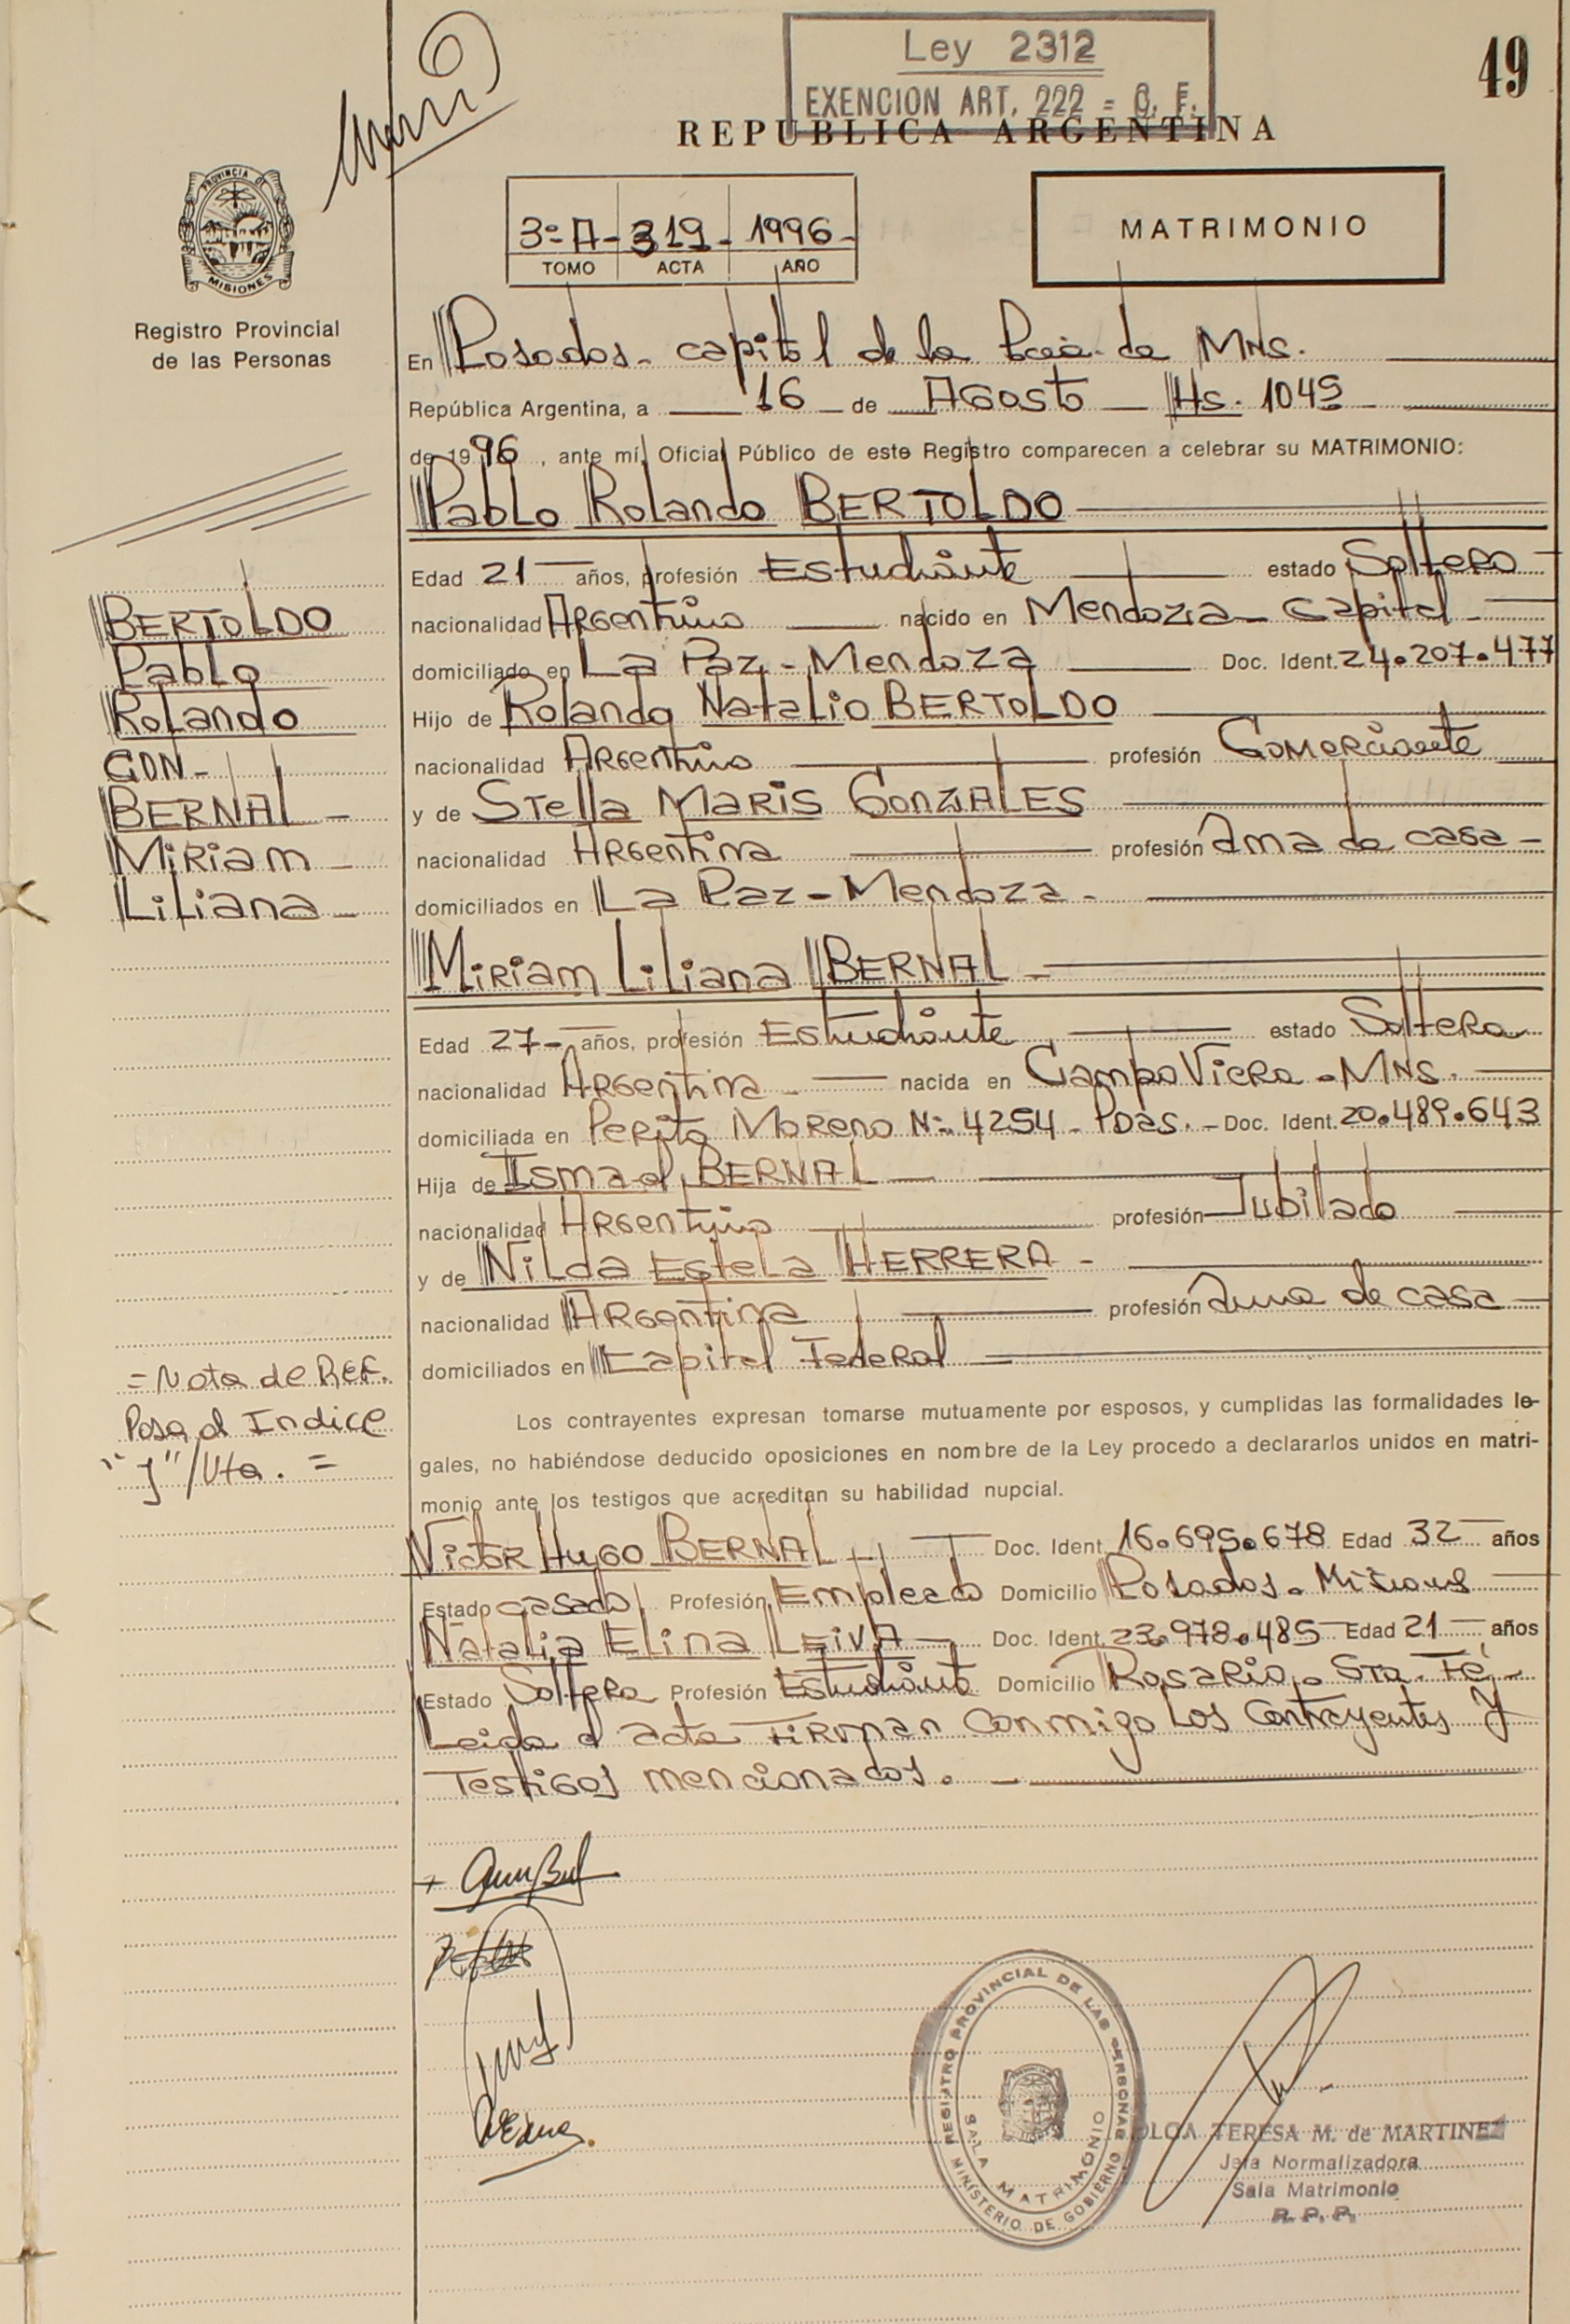 Ley 2312
EXENCION ART. 222 = C. F.
49
REPUBLICA ARGENTINA
PROVINCIA DE
MISIONES
Registro Provincial
de las Personas
3º A - 319 - 1996 -
TOMO ACTA AÑO
MATRIMONIO
En Posadas - capital de la Pcia. de MNS.
República Argentina, a 16 de Agosto Hs. 1045
de 1996, ante mí, Oficial Público de este Registro comparecen a celebrar su MATRIMONIO:
Pablo Rolando BERTOLDO
Edad 21 años, profesión Estudiante estado Soltero
nacionalidad Argentino nacido en Mendoza - Capital -
domiciliado en La Paz - Mendoza Doc. Ident. 24.207.477
Hijo de Rolando Natalio BERTOLDO
nacionalidad Argentino profesión Comerciante
y de Stella Maris GONZALES
nacionalidad Argentina profesión Ama de casa -
domiciliados en La Paz - Mendoza -
Miriam Liliana BERNAL -
Edad 27 - años, profesión Estudiante estado Soltera
nacionalidad Argentina - nacida en Campo Viera - MNS.
domiciliada en Perito Moreno Nº 4254 - Pdas. - Doc. Ident. 20.489.643
Hija de Ismael BERNAL
nacionalidad Argentino profesión Jubilado
y de Nilda Estela HERRERA -
nacionalidad Argentina profesión Ama de casa -
domiciliados en Capital Federal -
Los contrayentes expresan tomarse mutuamente por esposos, y cumplidas las formalidades le-
gales, no habiéndose deducido oposiciones en nombre de la Ley procedo a declararlos unidos en matri-
monio ante los testigos que acreditan su habilidad nupcial.
Victor Hugo BERNAL Doc. Ident. 16.695.678 Edad 32 años
Estado casado Profesión Empleado Domicilio Posadas - Misiones
Natalia Elina LEIVA - Doc. Ident. 23.978.485 Edad 21 años
Estado Soltera Profesión Estudiante Domicilio Rosario - Sta. Fé -
Leida el acta Firman conmigo los Contrayentes y
Testigos mencionados. -
BERTOLDO
Pablo
Rolando
CON -
BERNAL -
Miriam -
Liliana -
= Nota de REF.
Pasa al Indice
"J" / Vta. =
REGISTRO PROVINCIAL DE LAS PERSONAS
SALA MATRIMONIO
MINISTERIO DE GOBIERNO
OLGA TERESA M. de MARTINEZ
Jefa Normalizadora
Sala Matrimonio
R. P. P.